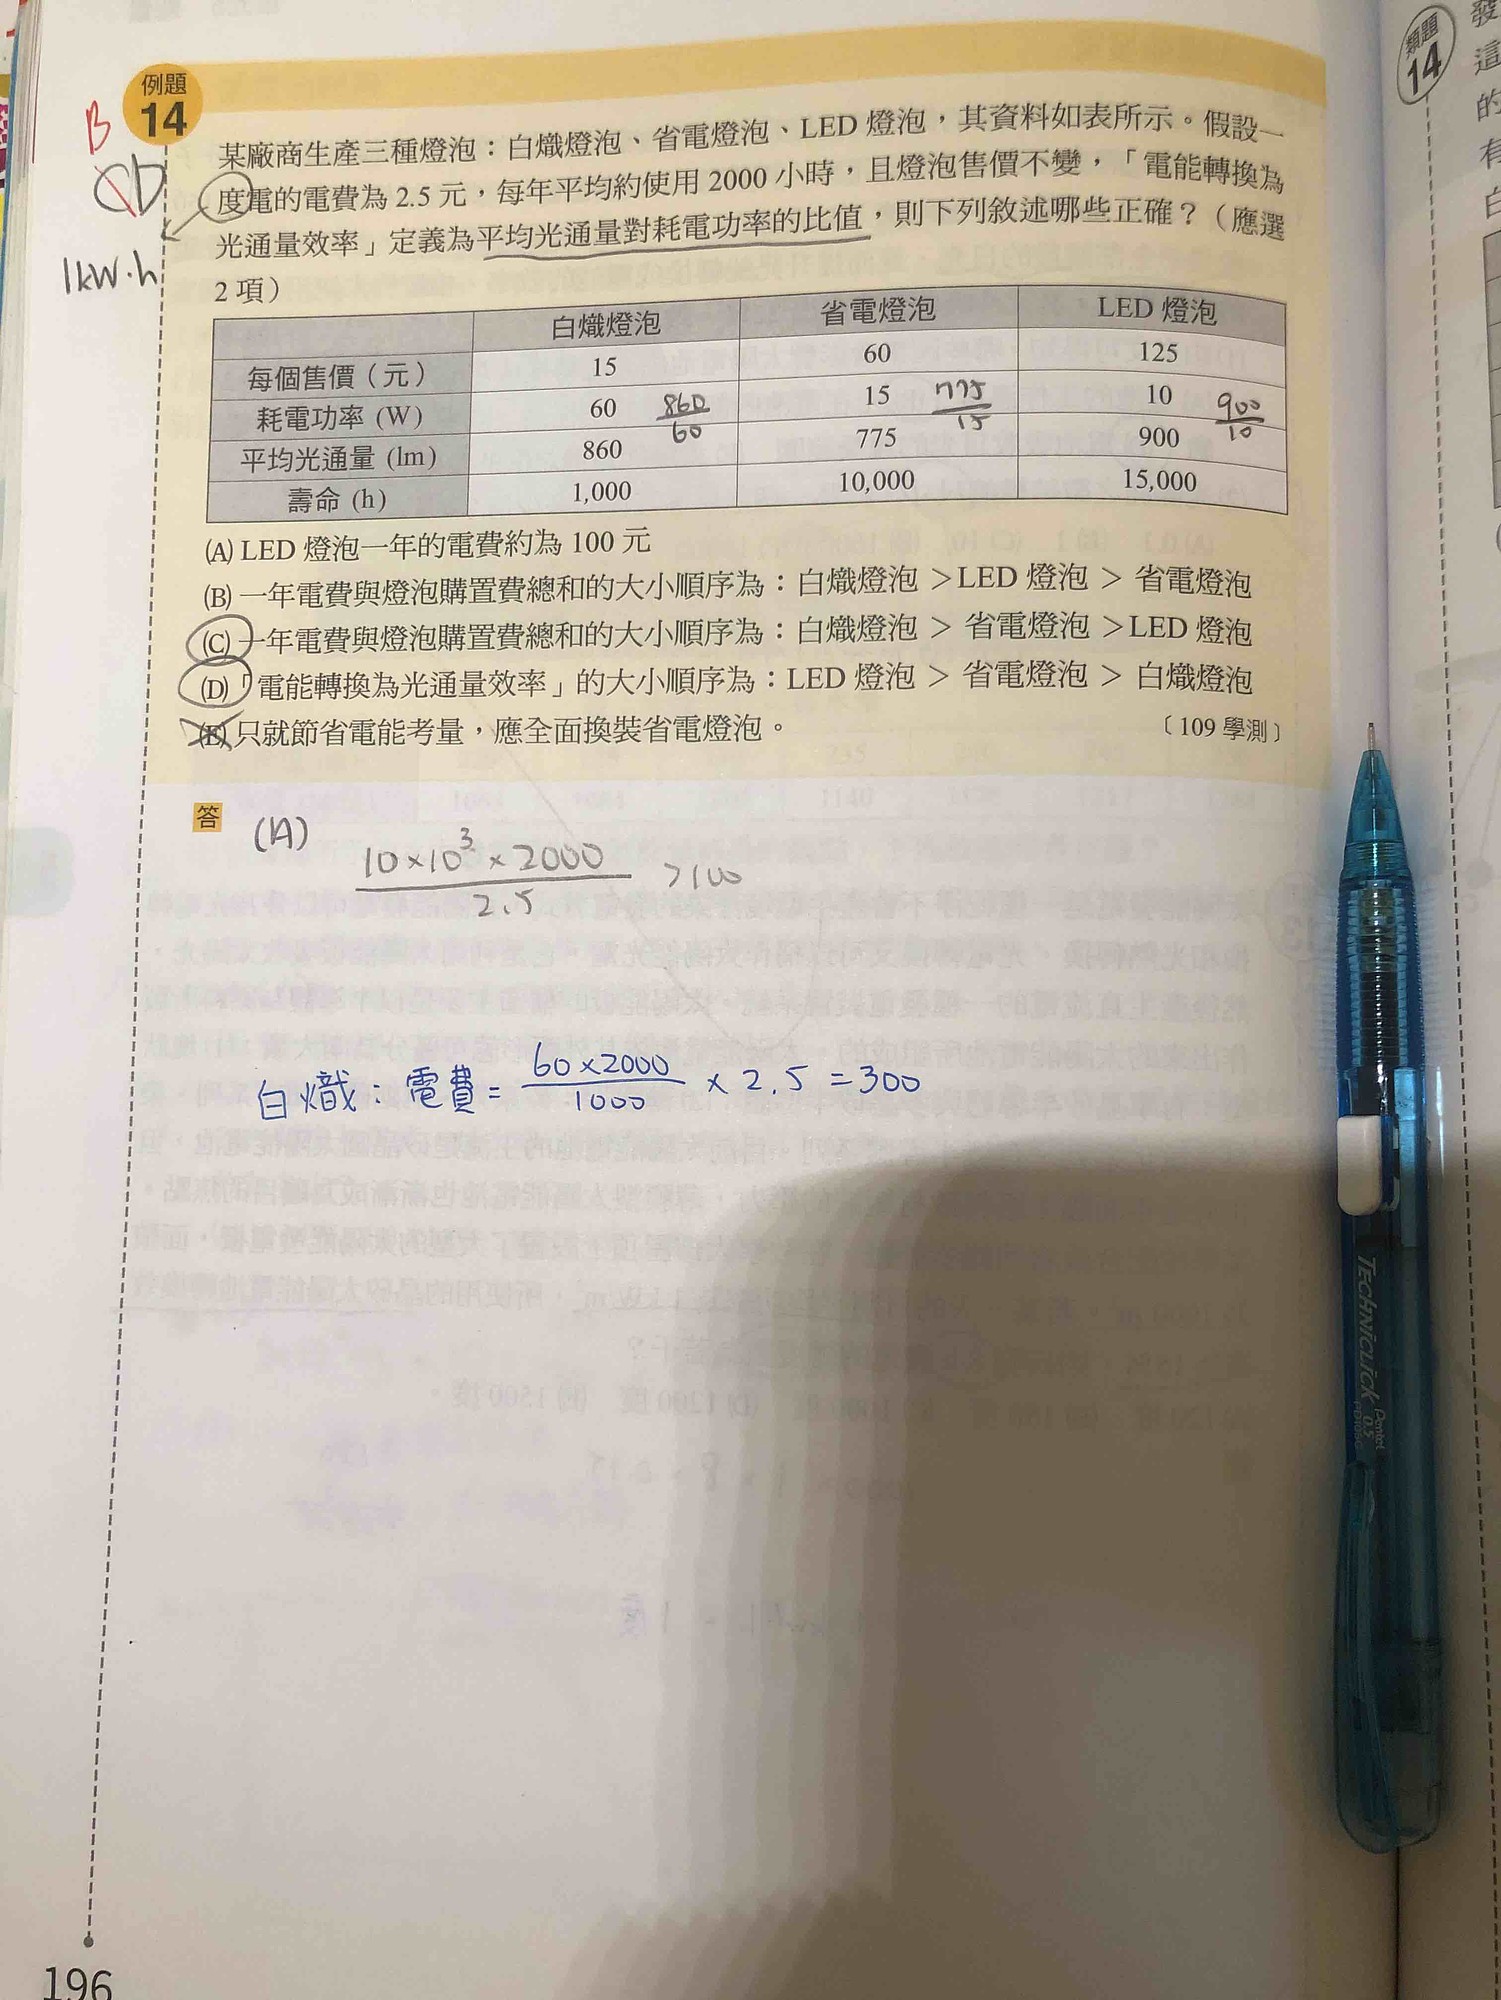 例題
14
B
CD
1kW·h
某廠商生產三種燈泡：白熾燈泡、省電燈泡、LED 燈泡，其資料如表所示。假設一
度電的電費為 2.5 元，每年平均約使用 2000 小時，且燈泡售價不變，「電能轉換為
光通量效率」定義為平均光通量對耗電功率的比值，則下列敘述哪些正確？（應選
2 項）
白熾燈泡 省電燈泡 LED 燈泡
每個售價（元） 15 60 125
耗電功率 (W) 60 860/60 15 775/15 10 900/10
平均光通量 (lm) 860 775 900
壽命 (h) 1,000 10,000 15,000
(A) LED 燈泡一年的電費約為 100 元
(B) 一年電費與燈泡購置費總和的大小順序為：白熾燈泡 >LED 燈泡 > 省電燈泡
(C) 一年電費與燈泡購置費總和的大小順序為：白熾燈泡 > 省電燈泡 >LED 燈泡
(D)「電能轉換為光通量效率」的大小順序為：LED 燈泡 > 省電燈泡 > 白熾燈泡
(E) 只就節省電能考量，應全面換裝省電燈泡。
〔109 學測〕
答
(A)
10×10³×2000/2.5 >100
白熾：電費=60×2000/1000 × 2.5 =300
196
類題
14
發
這
的
有
白
TECHNICLICK Pentel 0.5